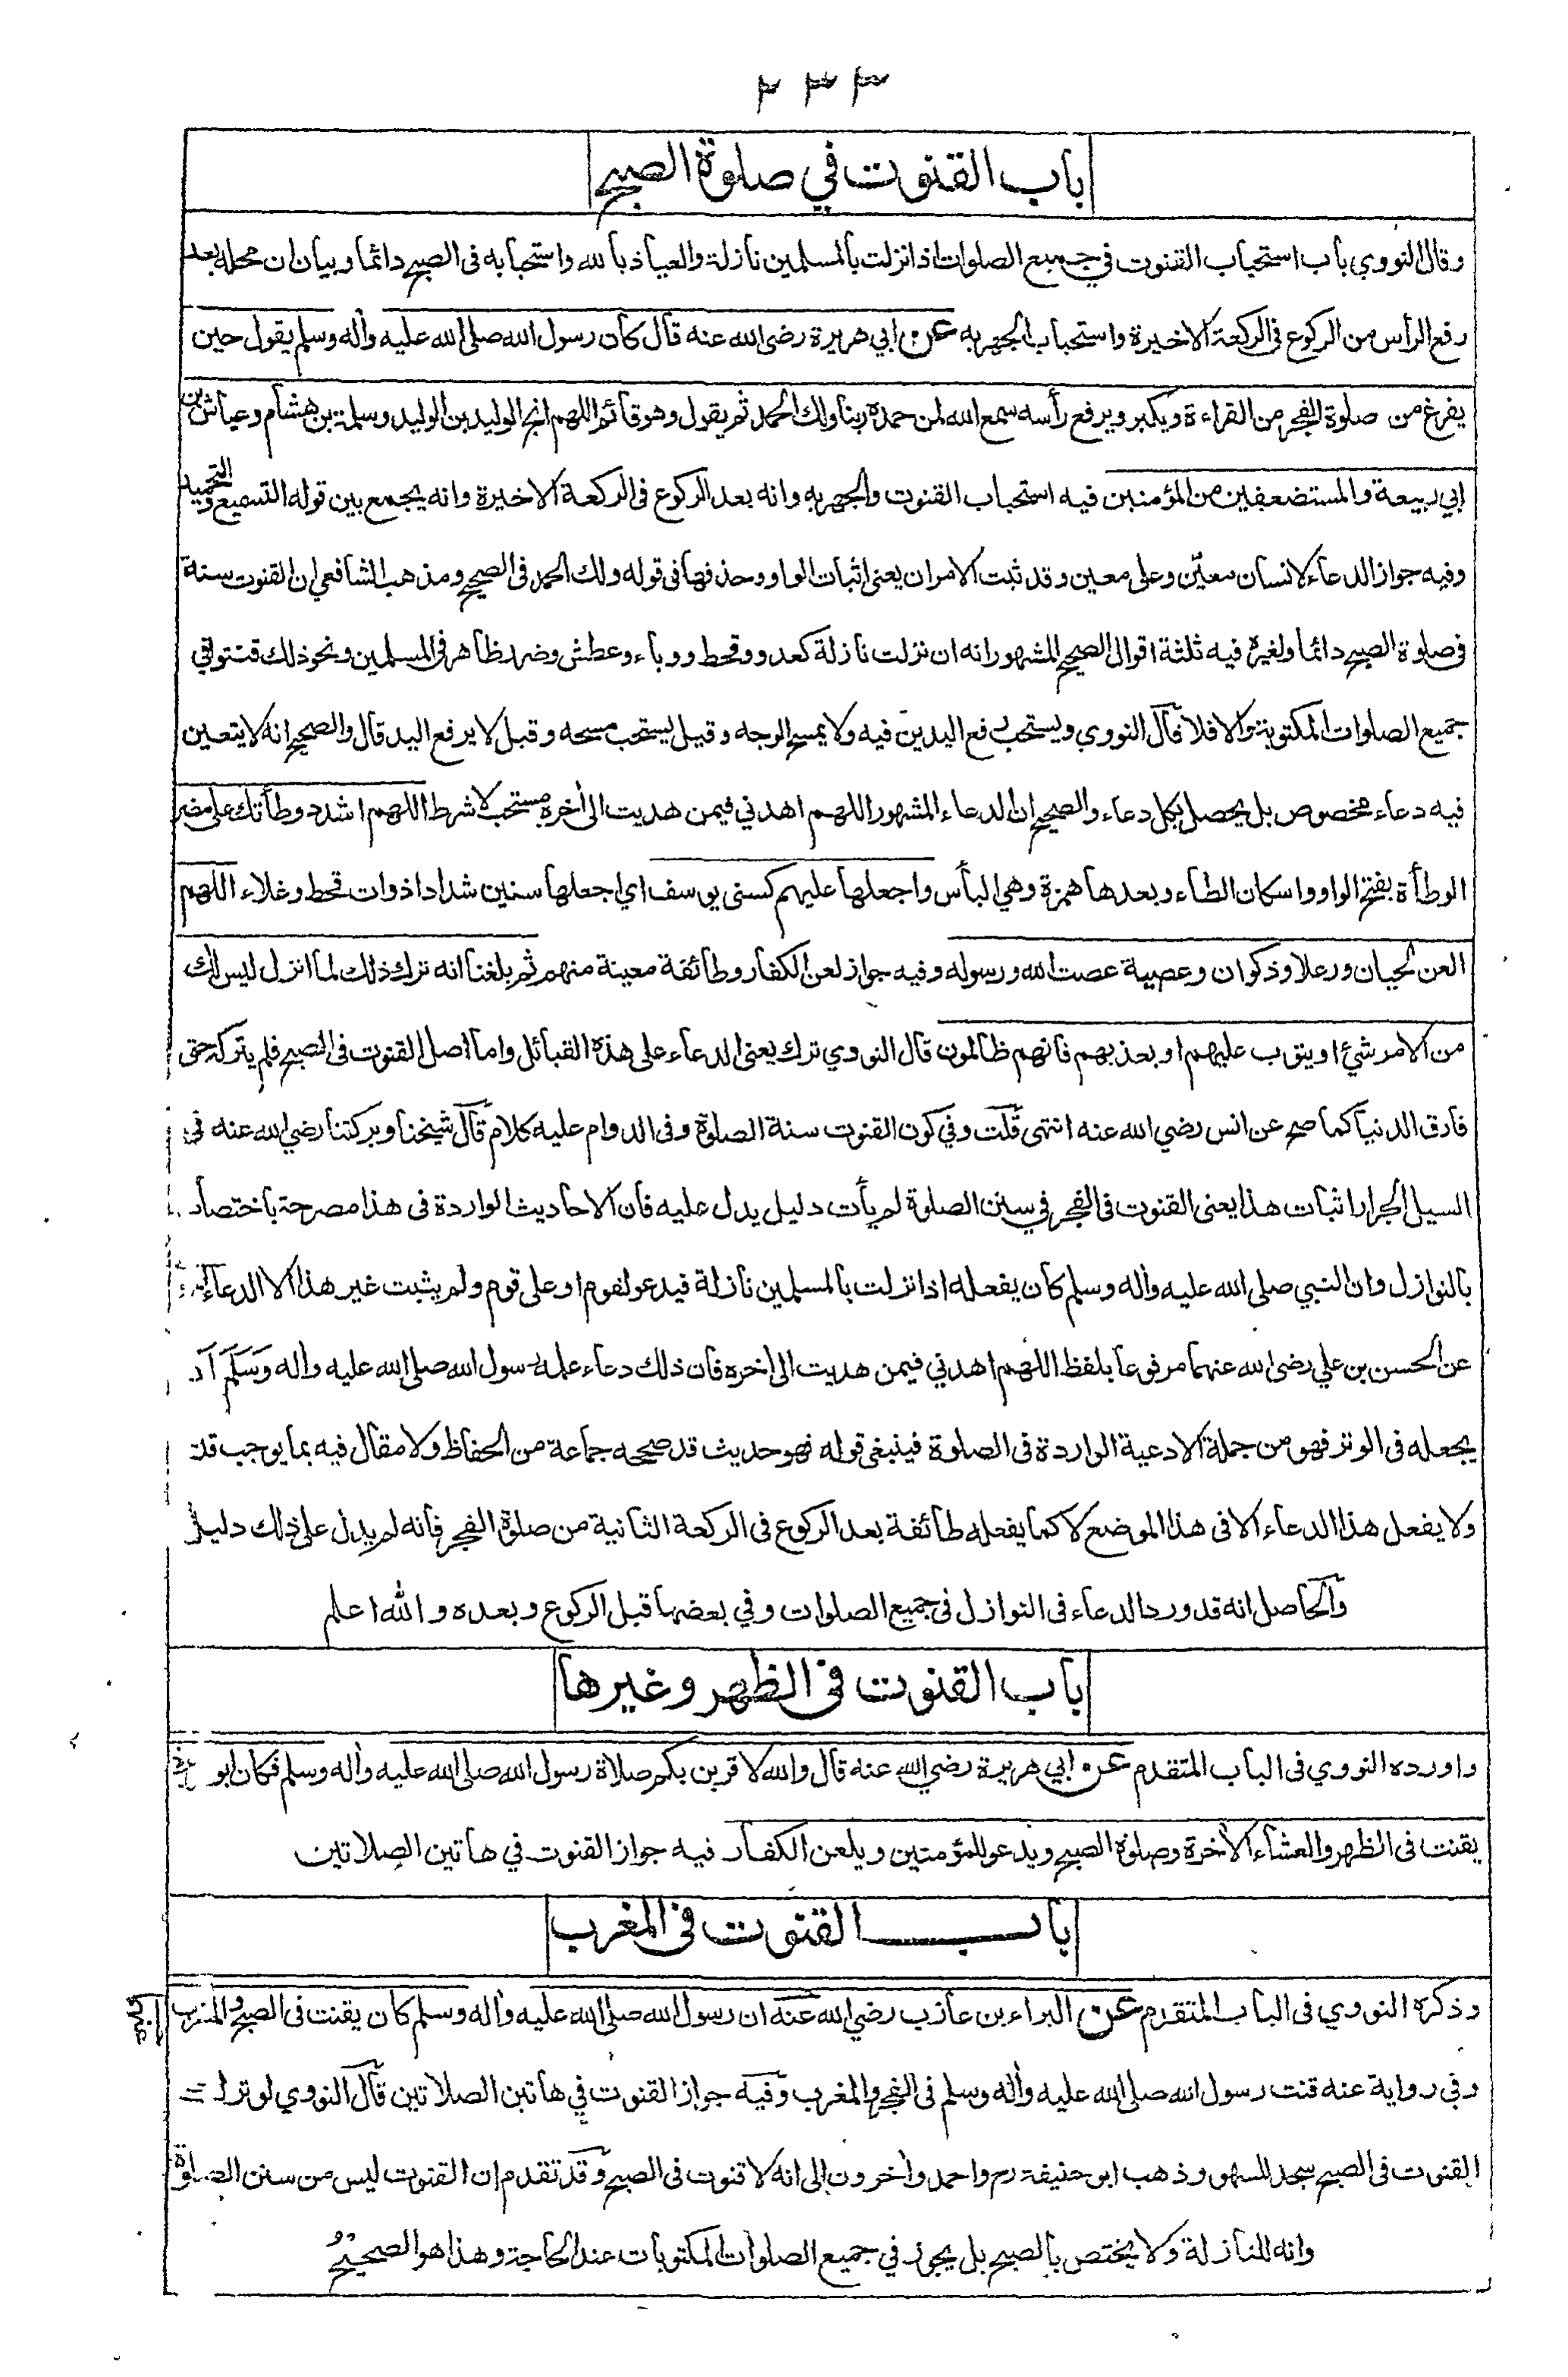 ٢٣٣
باب القنوت في صلوة الصبح
وقال النووي باب استحباب القنوت في جميع الصلوات اذا نزلت بالمسلمين نازلة والعياذ بالله واستحبابه فى الصبح دائما وبيان ان محله بعد
رفع الرأس من الركوع فى الركعة الاخيرة واستحباب الجهر به عن ابي هريرة رضى الله عنه قال كان رسول الله صلى الله عليه وأله وسلم يقول حين
يفرغ من صلوة الفجر من القراءة ويكبر ويرفع رأسه سمع الله لمن حمده ربنا ولك الحمد ثم يقول وهو قائم اللهم انج الوليد بن الوليد وسلمة بن هشام وعياش بن
ابي ربيعة والمستضعفين من المؤمنين فيه استحباب القنوت والجهر به وانه بعد الركوع فى الركعة الاخيرة وانه يجمع بين قوله التسميع والتحميد
وفيه جواز الدعاء لانسان معيّن وعلى معين وقد ثبت الامران يعنى اثبات الواو وحذفها فى قوله ولك الحمد فى الصحيح ومذهب الشافعي ان القنوت سنة
فى صلوة الصبح دائما ولغيره فيه ثلثة اقوال الصحيح المشهور انه ان نزلت نازلة كعدو وقحط ووباء وعطش وضرر ظاهر فى المسلمين ونحو ذلك قنتوا في
جميع الصلوات المكتوبة والا فلا قال النووي ويستحب رفع اليدين فيه ولا يمسح الوجه وقيل يستحب مسحه وقيل لا يرفع اليد قال والصحيح انه لا يتعين
فيه دعاء مخصوص بل يحصل بكل دعاء والصحيح ان الدعاء المشهور اللهم اهدني فيمن هديت الى أخره مستحب لا شرط اللهم اشدد وطأتك على مضر
الوطأة بفتح الواو واسكان الطاء وبعدها همزة وهي البأس واجعلها عليهم كسنى يوسف اي اجعلها سنين شدادا ذوات قحط وغلاء اللهم
العن لحيان ورعلا وذكوان وعصية عصت الله ورسوله وفيه جواز لعن الكفار وطائفة معينة منهم ثم بلغنا انه ترك ذلك لما انزل ليس لك
من الامر شيء او يتوب عليهم او يعذبهم فانهم ظالمون قال النووي ترك يعنى الدعاء على هذه القبائل واما اصل القنوت فى الصبح فلم يتركه حتى
فارق الدنيا كما صح عن انس رضي الله عنه انتهى قلت وفي كون القنوت سنة الصلوة وفى الدوام عليه كلام قال شيخنا وبركتنا رضي الله عنه في
السيل الجرار اثبات هذا يعنى القنوت فى الفجر في سنن الصلوة لم يأت دليل يدل عليه فان الاحاديث الواردة فى هذا مصرحة باختصاصه
بالنوازل وان النبي صلى الله عليه وأله وسلم كان يفعله اذا نزلت بالمسلمين نازلة فيدعو لقوم او على قوم ولم يثبت غير هذا الا الدعاء
عن الحسن بن علي رضى الله عنهما مرفوعا بلفظ اللهم اهدني فيمن هديت الى اخره فان ذلك دعاء علمه رسول الله صلى الله عليه وأله وسلم ان
يجعله فى الوتر فهو من جملة الادعية الواردة فى الصلوة فينبغى قوله فهو حديث قد صححه جماعة من الحفاظ ولا مقال فيه بما يوجب
ولا يفعل هذا الدعاء الا فى هذا الموضع لا كما يفعله طائفة بعد الركوع فى الركعة الثانية من صلوة الفجر فانه لم يدل على ذلك دليل
والحاصل انه قد ورد الدعاء فى النوازل فى جميع الصلوات وفي بعضها قبل الركوع وبعده والله اعلم
باب القنوت فى الظهر وغيرها
واورده النووي فى الباب المتقدم عن ابي هريرة رضي الله عنه قال والله لاقربن بكم صلاة رسول الله صلى الله عليه وأله وسلم فكان ابو
يقنت فى الظهر والعشاء الأخرة وصلوة الصبح ويدعو للمؤمنين ويلعن الكفار فيه جواز القنوت في هاتين الصلاتين
باب القنوت فى المغرب
وذكره النووي فى الباب المتقدم عن البراء بن عازب رضي الله عنه ان رسول الله صلى الله عليه وأله وسلم كان يقنت فى الصبح والمغرب
وفي رواية عنه قنت رسول الله صلى الله عليه وأله وسلم فى الفجر والمغرب وفيه جواز القنوت في هاتين الصلاتين قال النووي لو ترك
القنوت فى الصبح سجد للسهو وذهب ابو حنيفة رح واحمد وأخرون الى انه لا قنوت فى الصبح وقد تقدم ان القنوت ليس من سنن الصلوة
وانه للنازلة ولا يختص بالصبح بل يجوز في جميع الصلوات المكتوبات عند الحاجة وهذا هو الصحيح